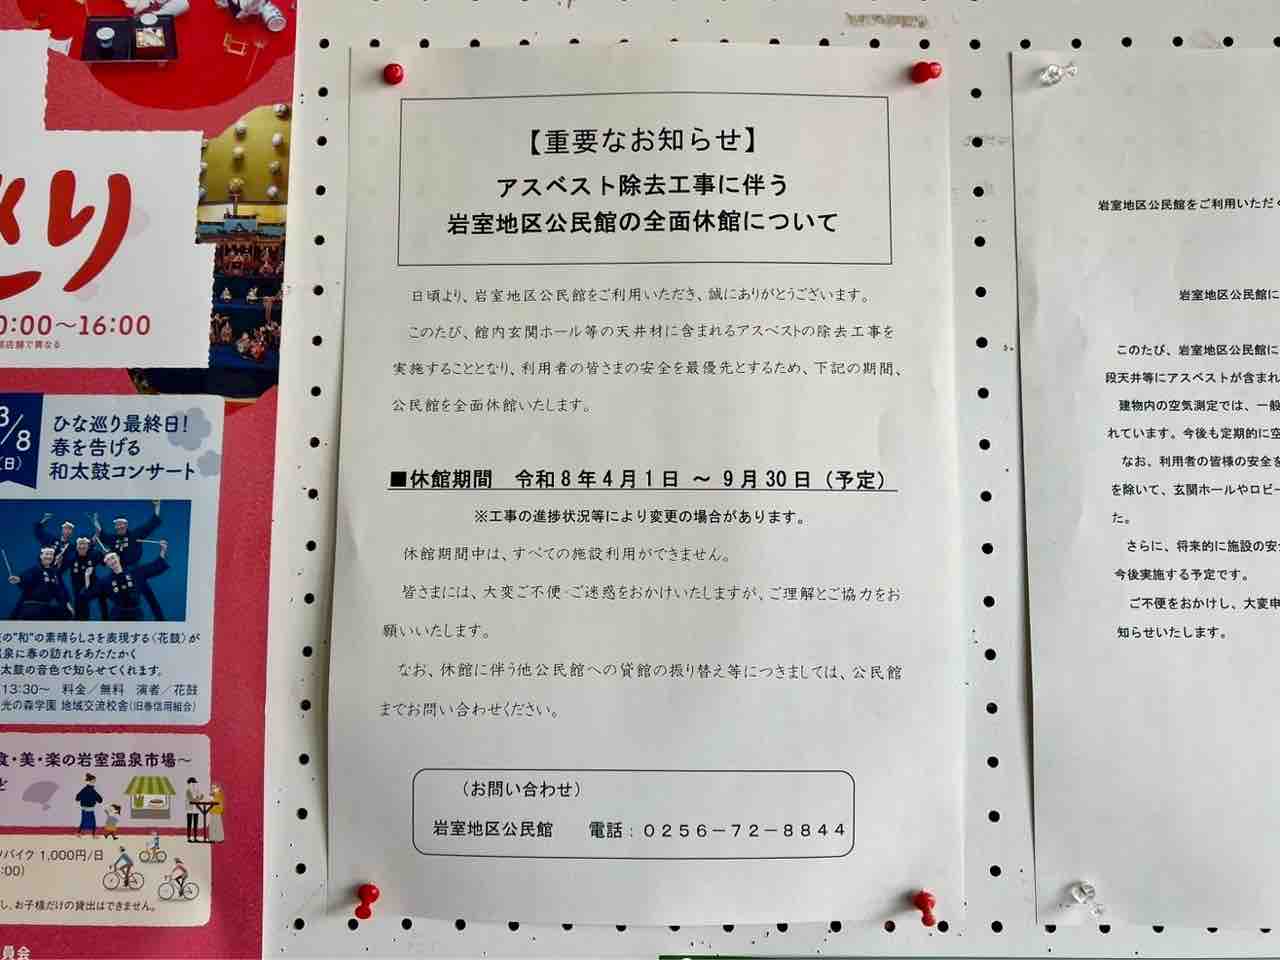 巡り
0:00～16:00
店舗で異なる
3/8
(日)
ひな巡り最終日!
春を告げる
和太鼓コンサート
の"和"の素晴らしさを表現する〈花鼓〉が
温泉に春の訪れをあたたかく
太鼓の音色で知らせてくれます。
13:30～ 料金／無料 演者／花鼓
光の森学園 地域交流校舎(旧巻信用組合)
食・美・楽の岩室温泉市場～
ど
バイク 1,000円/日
:00)
し、お子様だけの貸出はできません。
員会
【重要なお知らせ】
アスベスト除去工事に伴う
岩室地区公民館の全面休館について
日頃より、岩室地区公民館をご利用いただき、誠にありがとうございます。
このたび、館内玄関ホール等の天井材に含まれるアスベストの除去工事を
実施することとなり、利用者の皆さまの安全を最優先とするため、下記の期間、
公民館を全面休館いたします。
■休館期間 令和8年4月1日 ～ 9月30日（予定）
※工事の進捗状況等により変更の場合があります。
休館期間中は、すべての施設利用ができません。
皆さまには、大変ご不便・ご迷惑をおかけいたしますが、ご理解とご協力をお
願いいたします。
なお、休館に伴う他公民館への貸館の振り替え等につきましては、公民館
までお問い合わせください。
（お問い合わせ）
岩室地区公民館 電話：０２５６－７２－８８４４
岩室地区公民館をご利用いただく
岩室地区公民館に
このたび、岩室地区公民館に
段天井等にアスベストが含まれ
建物内の空気測定では、一般
れています。今後も定期的に空
なお、利用者の皆様の安全を
を除いて、玄関ホールやロビー
た。
さらに、将来的に施設の安全
今後実施する予定です。
ご不便をおかけし、大変申
知らせいたします。